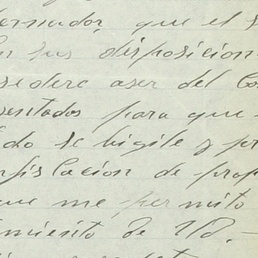 ernador, que el s
en sus disposicion
sidere aser del Co
sentados para que
do se bigile y pr
nfiscacion de prop
que me permito
imiento de Ud. -